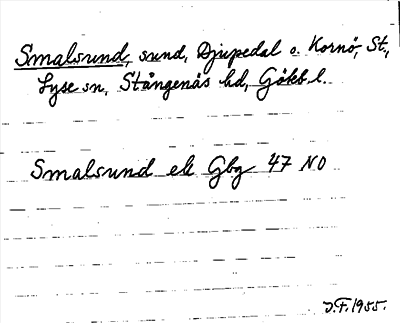 Smalsund, sund, Djupedal o. Kornö, St.,
Lyse sn, Stångenäs hd, Gökb l.
Smalsund ek Gbg 47 NO
J.F. 1955.